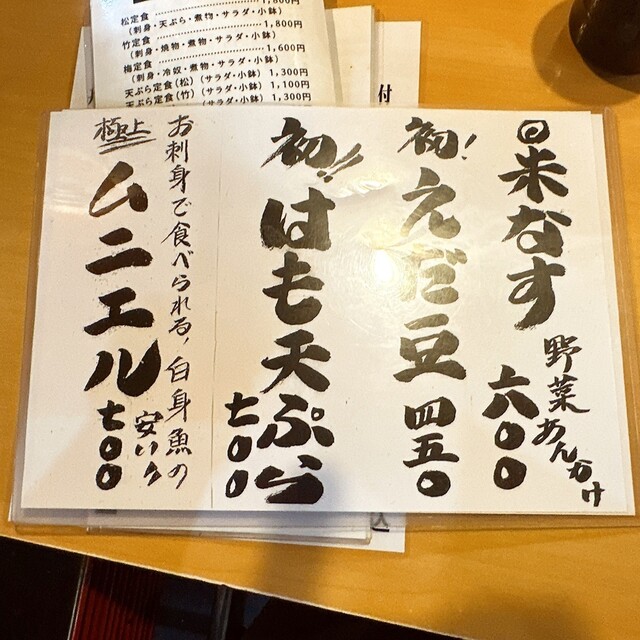 1,800円
松定食
(刺身・天ぷら・煮物・サラダ・小鉢)
竹定食 1,800円
(刺身・焼物・煮物・サラダ・小鉢)
梅定食 1,600円
(刺身・冷奴・煮物・サラダ・小鉢)
天ぷら定食(松)(サラダ・小鉢) 1,300円
天ぷら定食(竹)(サラダ・小鉢) 1,100円
1,300円
付
米なす
野菜あんかけ
六〇〇
初!えだ豆
四五〇
初!!はも天ぷら
七〇〇
お刺身で食べられる、白身魚の
極上
ムニエル
安いク
七〇〇